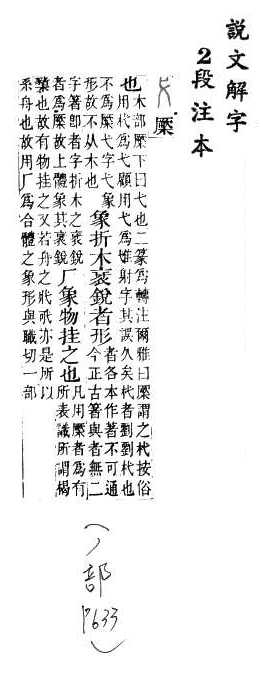 說文解字
2段注本
橜
也木部橜下曰弋也二篆爲轉注爾雅曰橜謂之杙按俗
用杙爲弋顧用弋爲隿射字其誤久矣杙者劉劉杙也
不爲橜弋字弋象
形故不从木也
象折木衺銳者形
者各本作著不可通
今正古箸與者無二
字箸卽者字折木之衺銳
者爲橜故上體象其衺銳
厂象物挂之也
凡用橜者爲有
所表識所謂楬
櫫也故有物挂之又若舟之牂牁亦是所以
系舟也故用厂爲合體之象形與職切一部
(丿部 P633)